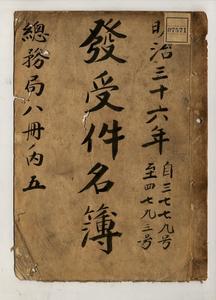 07571
明治三十六年
自三七七九号
至四七九三号
發受件名簿
總務局八冊ノ内五